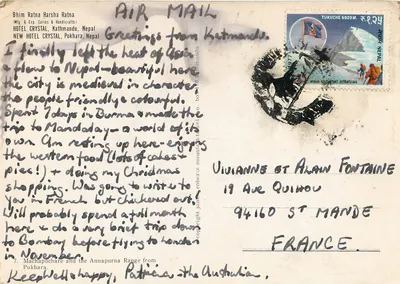 AIR MAIL
Bhim Ratna Harsha Ratna
HOTEL CRYSTAL, Kathmandu, Nepal
NEW HOTEL CRYSTAL, Pokhara, Nepal
Greetings from Katmandu.
I finally left the heat of Asia
& flew to Nepal - beautiful here
the city is medieval in character
the people friendly & colourful.
Spent 7days in Burma & made the
trip to Mandalay - a world of its
own. Am resting up here - enjoy
the western food (lots of cakes &
pies!) + doing my Christmas
shopping. Was going to write to
you in French but chickened out!
Will probably spend a full month
here & do a very brief trip down
to Bombay before flying to London
in November.
Machapuchare and the Annapurna Range from
Pokhara.
Keep Well & happy, Patricia - the Australian.
TUKUCHE 6920M.
VIVIANNE ET ALAIN FONTAINE
19 AVE QUIHOU
94160 ST MANDE
FRANCE.